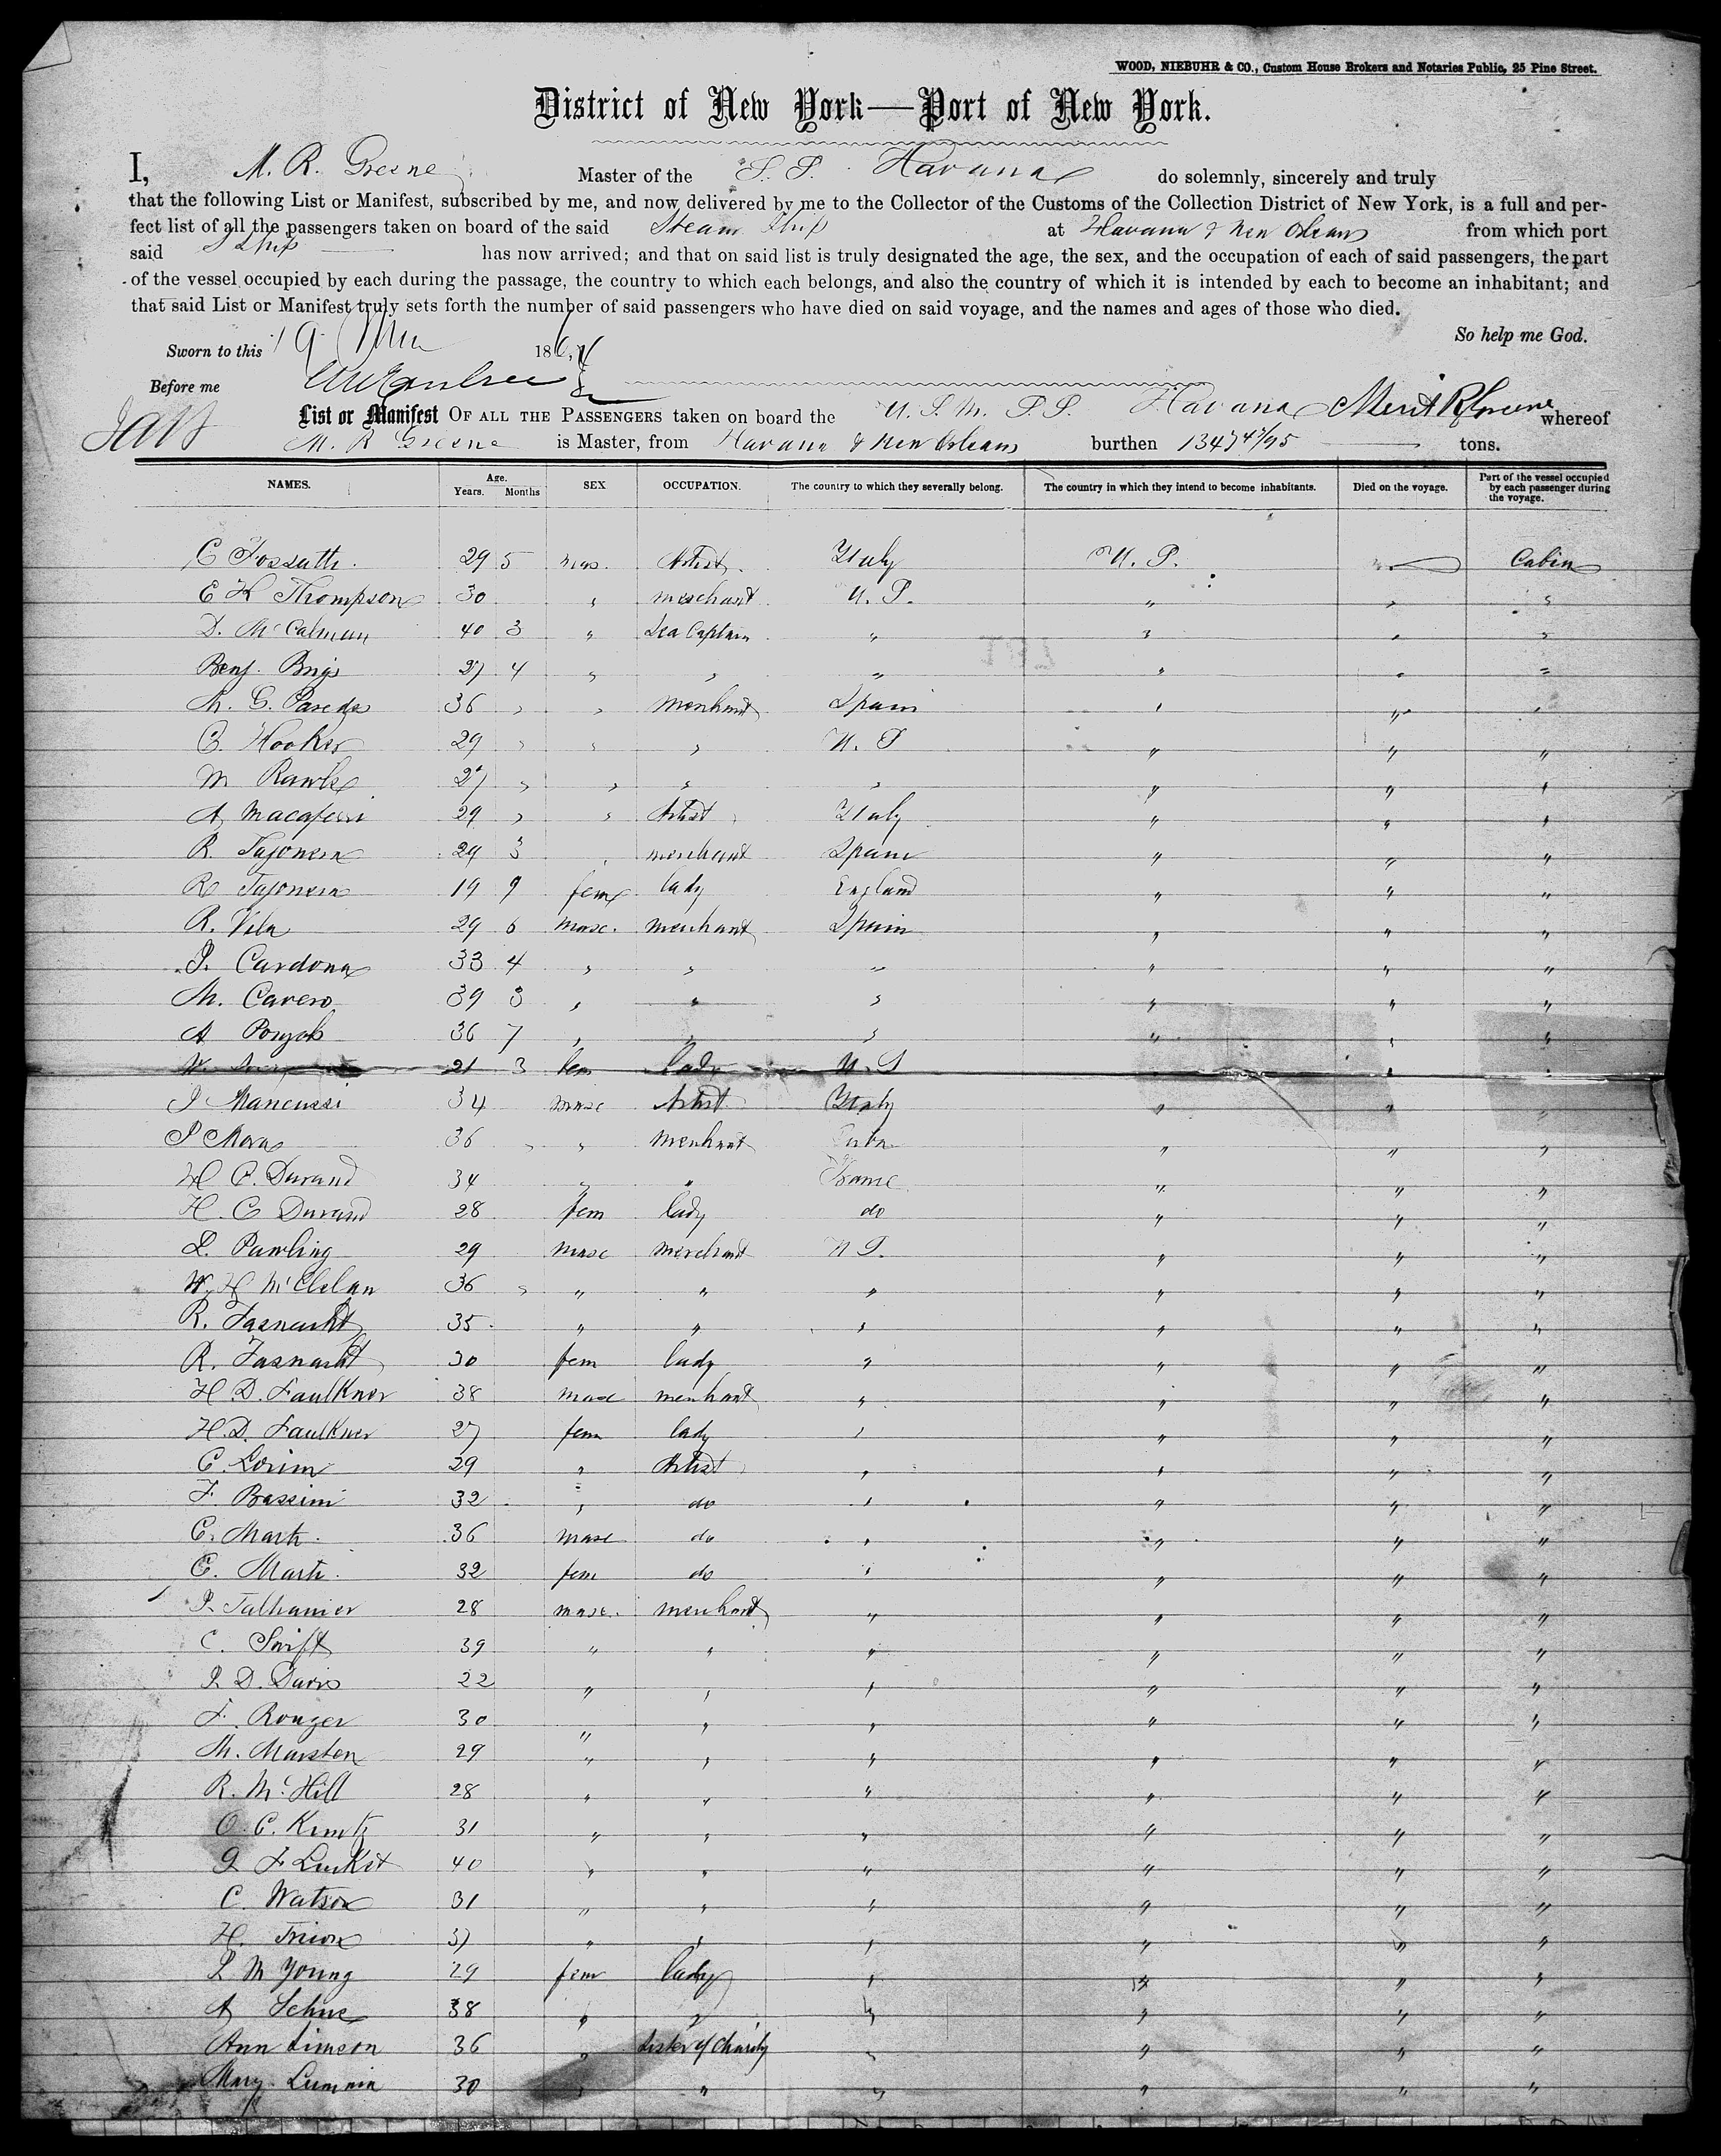 WOOD, NIEBUHR & CO., Custom House Brokers and Notaries Public, 25 Pine Street.
District of New York—Port of New York.
I, M. R. Greene Master of the S. S. Havana do solemnly, sincerely and truly
that the following List or Manifest, subscribed by me, and now delivered by me to the Collector of the Customs of the Collection District of New York, is a full and per-
fect list of all the passengers taken on board of the said Steam Ship at Havana & New Orleans from which port
said S Ship has now arrived; and that on said list is truly designated the age, the sex, and the occupation of each of said passengers, the part
of the vessel occupied by each during the passage, the country to which each belongs, and also the country of which it is intended by each to become an inhabitant; and
that said List or Manifest truly sets forth the number of said passengers who have died on said voyage, and the names and ages of those who died.
So help me God.
Sworn to this 19 186
Before me
List or Manifest OF ALL THE PASSENGERS taken on board the U. S. M. S. S. Havana whereof
M. R Greene is Master, from Havana & New Orleans burthen 1347 47/95 tons.
NAMES. Age. Years. Months SEX OCCUPATION. The country to which they severally belong. The country in which they intend to become inhabitants. Died on the voyage. Part of the vessel occupied by each passenger during the voyage.
C Fossatti 29 5 mas. Artist Italy U. S. Cabin
E H Thompson 30 " merchant U. S. " " "
D. McCalman 40 3 " Sea Captain " " " "
Benj. Brigs 27 4 " " " " " "
M. G. Paredes 36 " " merchant Spain " " "
C. Hooker 29 " " " U. S " " "
M Rawle 27 " " " " " " "
A Macaferri 29 " " Artist Italy " " "
R. Tajonera 29 3 " merchant Spain " " "
R Tajonera 19 9 fem lady England " " "
R. Vila 29 6 masc. merchant Spain " " "
J. Cardona 33 4 " " " " " "
M. Cavero 39 3 " " " " " "
A 36 7 " " " " " "
21 3 fem lady U. S " " "
J Mancussi 34 masc Artist Italy " " "
J Mora 36 " " merchant Cuba " " "
H C. Durand 34 " " France " " "
H. C Durand 28 fem lady do " " "
L. Pawling 29 masc merchant U S. " " "
W. H McClelan 36 " " " " " " "
R. Fasnacht 35 " " " " " "
R. Fasnacht 30 fem lady " " " "
H. D. Faulkner 38 masc merchant " " " "
H. D. Faulkner 27 fem lady " " " "
C. Lorini 29 " Artist " " " "
F. Bassini 32 " do " " " "
C. Marti 36 masc do " " " "
C. Marti 32 fem do " " " "
28 masc. merchant " " " "
C. Swift 39 " " " " " "
J. D. Davis 22 " " " " " "
F. Rouzer 30 " " " " " "
M. Marsten 29 " " " " " "
R. Mc Hill 28 " " " " " "
O. C. Kuntz 31 " " " " " "
G F Luckit 40 " " " " " "
C. Watson 31 " " " " " "
H. 37 " " " " " "
L M Young 29 fem lady " " " "
A 38 " " " " " "
Ann Simson 36 " Sister of Charity " " " "
Mary 30 " " " " " "